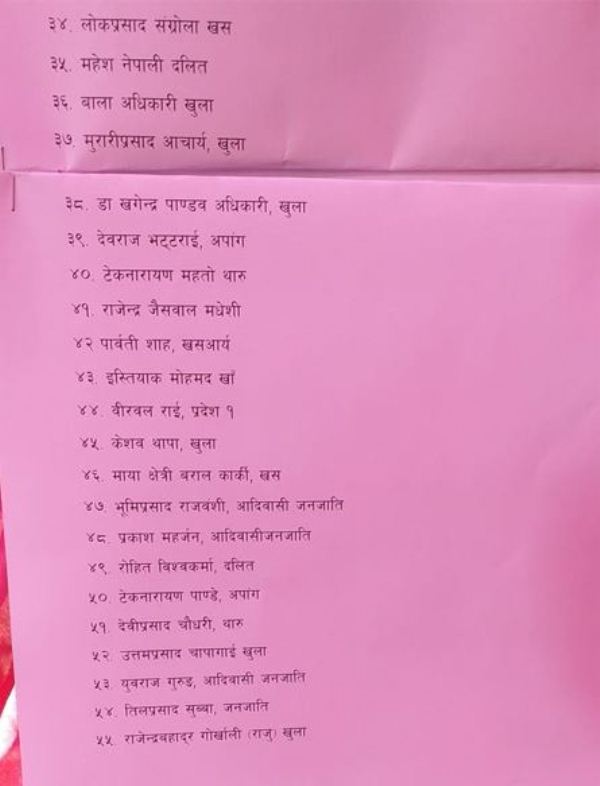 ३४. लोकप्रसाद संग्रोला खस
३५. महेश नेपाली दलित
३६. बाला अधिकारी खुला
३७. मुरारीप्रसाद आचार्य, खुला
३८. डा खगेन्द्र पाण्डव अधिकारी, खुला
३९. देवराज भट्टराई, अपांग
४०. टेकनारायण महतो थारु
४१. राजेन्द्र जैसवाल मधेशी
४२ पार्वती शाह, खसआर्य
४३. इस्तियाक मोहमद खाँ
४४. वीरवल राई, प्रदेश १
४५. केशव थापा, खुला
४६. माया क्षेत्री बराल कार्की, खस
४७. भूमिप्रसाद राजवंशी, आदिवासी जनजाति
४८. प्रकाश महर्जन, आदिवासीजनजाति
४९. रोहित विश्वकर्मा, दलित
५०. टेकनारायण पाण्डे, अपांग
५१. देवीप्रसाद चौधरी, थारु
५२. उत्तमप्रसाद चापागाई खुला
५३. युवराज गुरुङ, आदिवासी जनजाति
५४. तिलप्रसाद सुब्बा, जनजाति
५५. राजेन्द्रबहादुर गोर्खाली (राजु) खुला